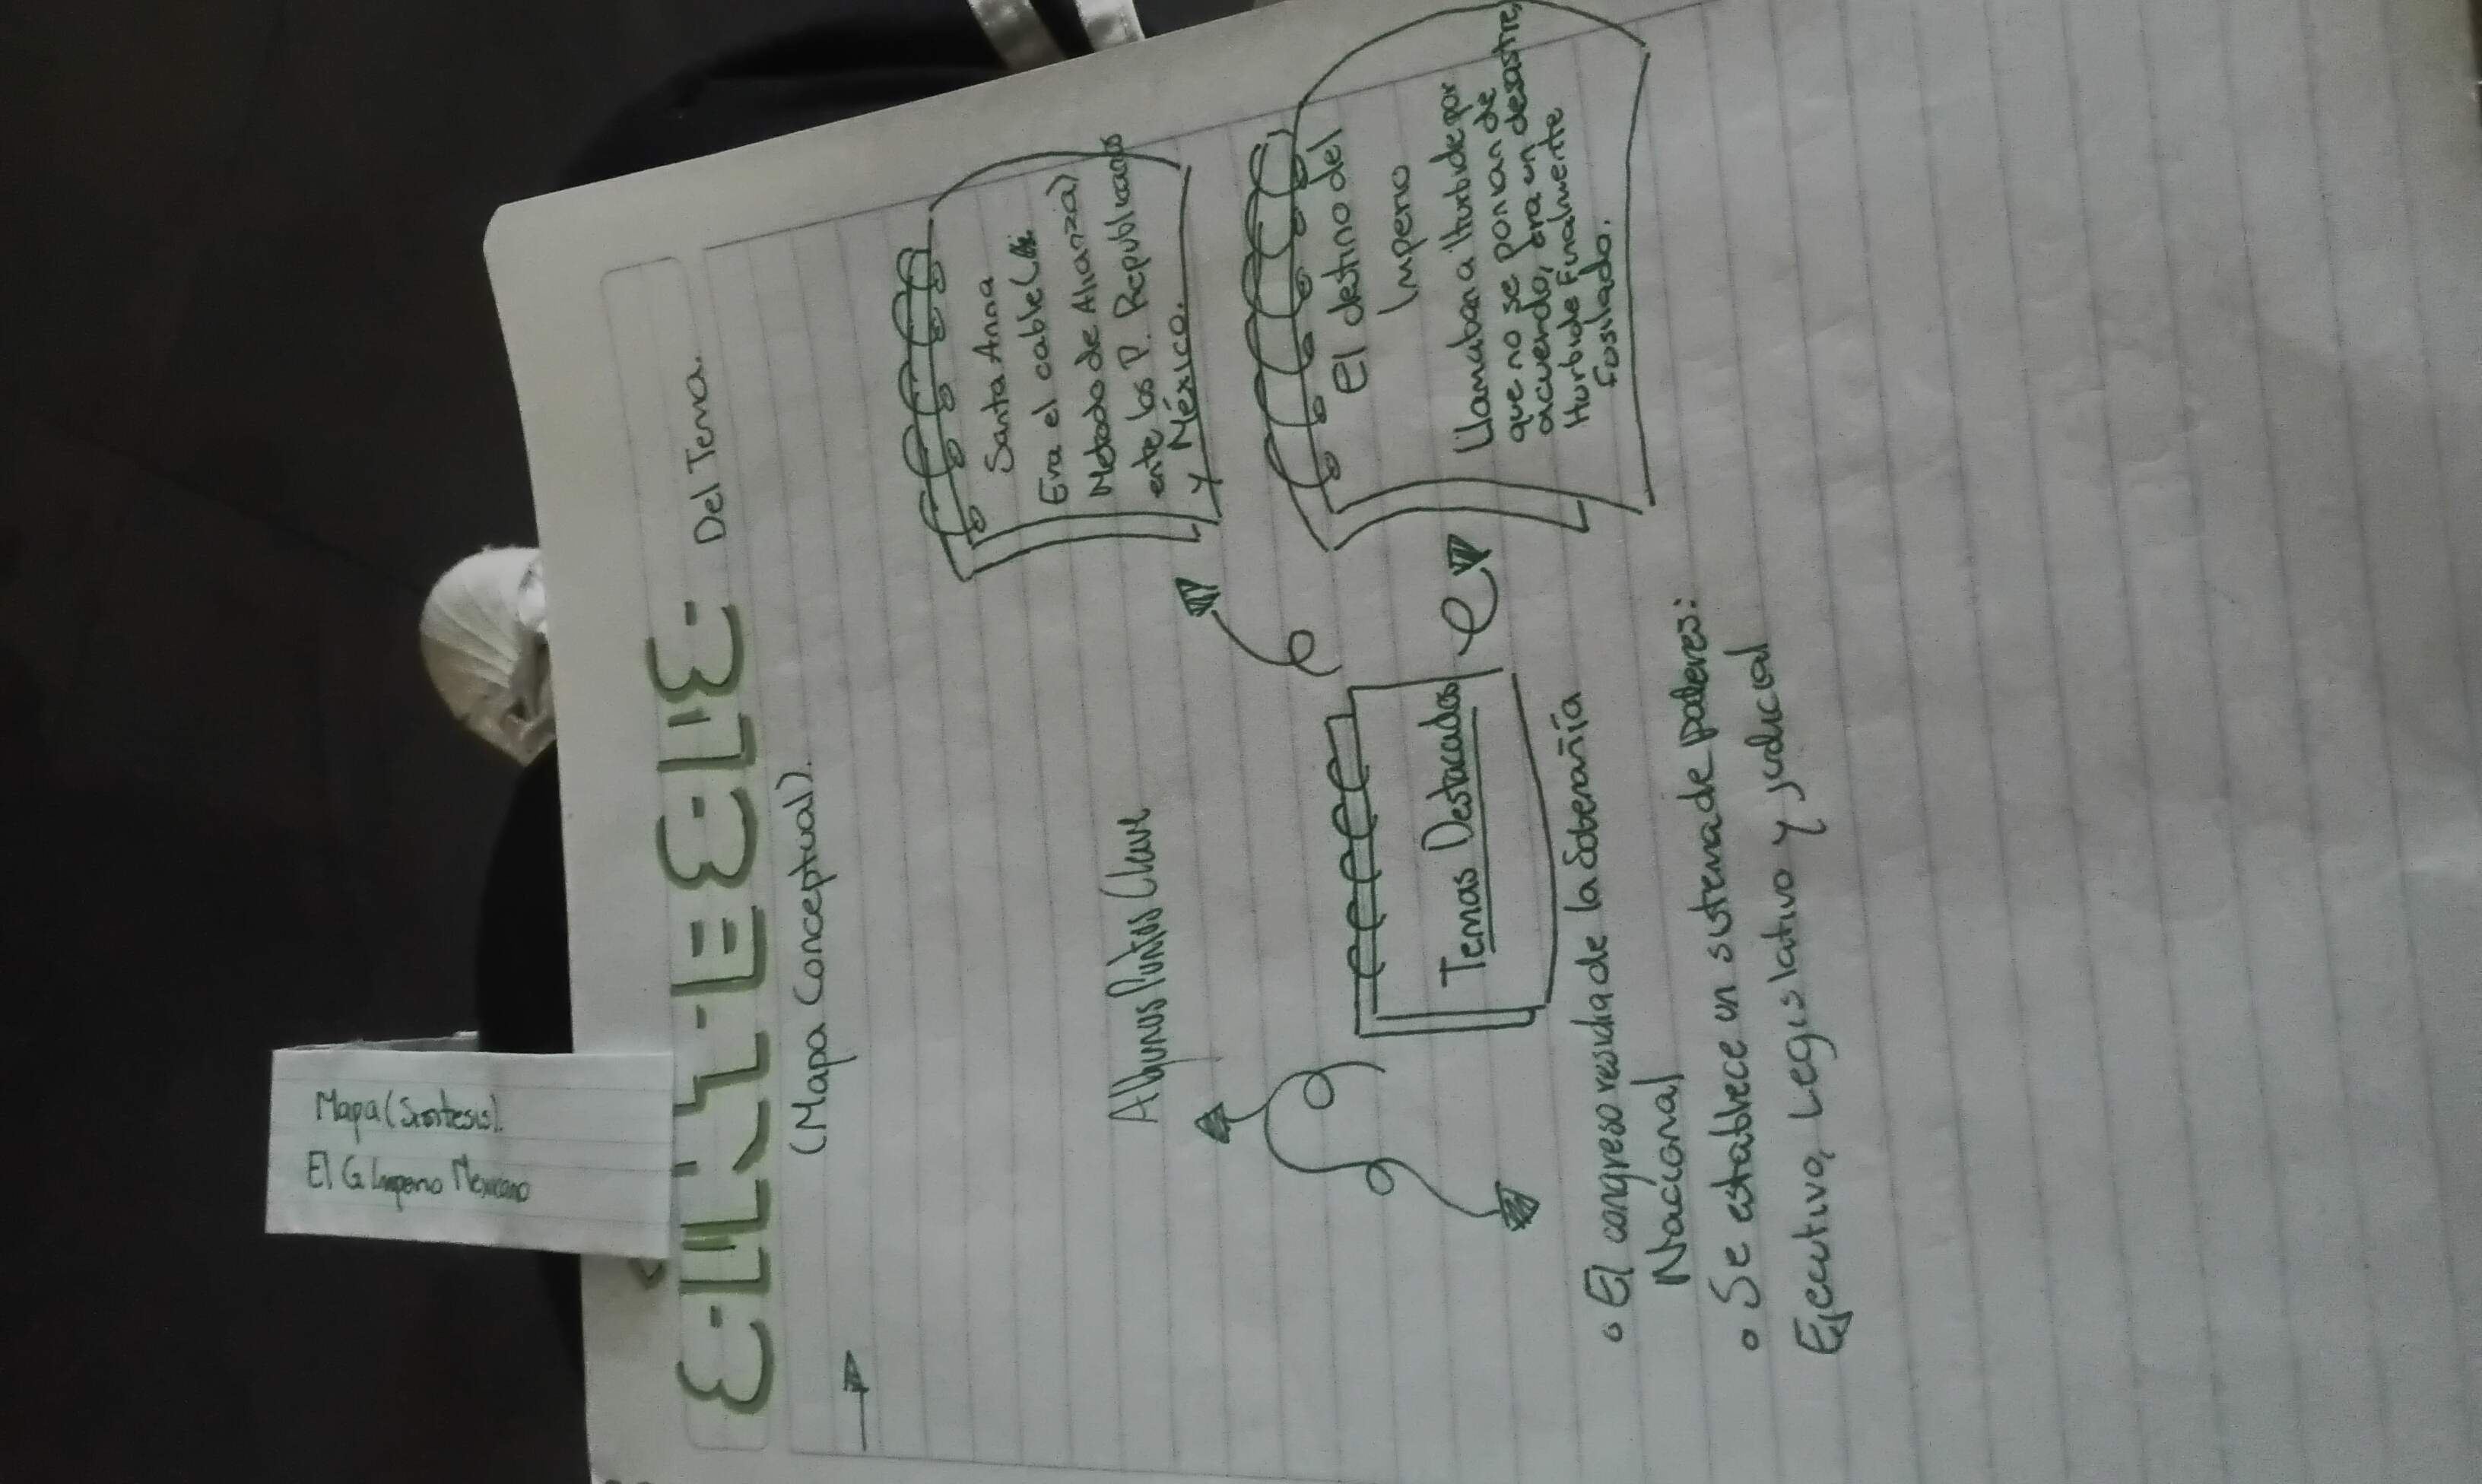 Mapa (Síntesis).
El G Imperio Mexicano
Del Tema.
(Mapa Conceptual).
Santa Anna
Era el cable (
Metodo de Alianzia)
ente los P. Republicanos
y México.
Algunos Puntos Clave
Temas Destacados
El destino del
Imperio
Llamaban a Iturbide por
que no se ponian de
acuerdo, era un desastre,
Iturbide Finalmente
Fusilado.
El congreso residia de la Soberañía
Nacional
Se establece un sistema de poderes:
Ejecutivo, Legislativo y judicial